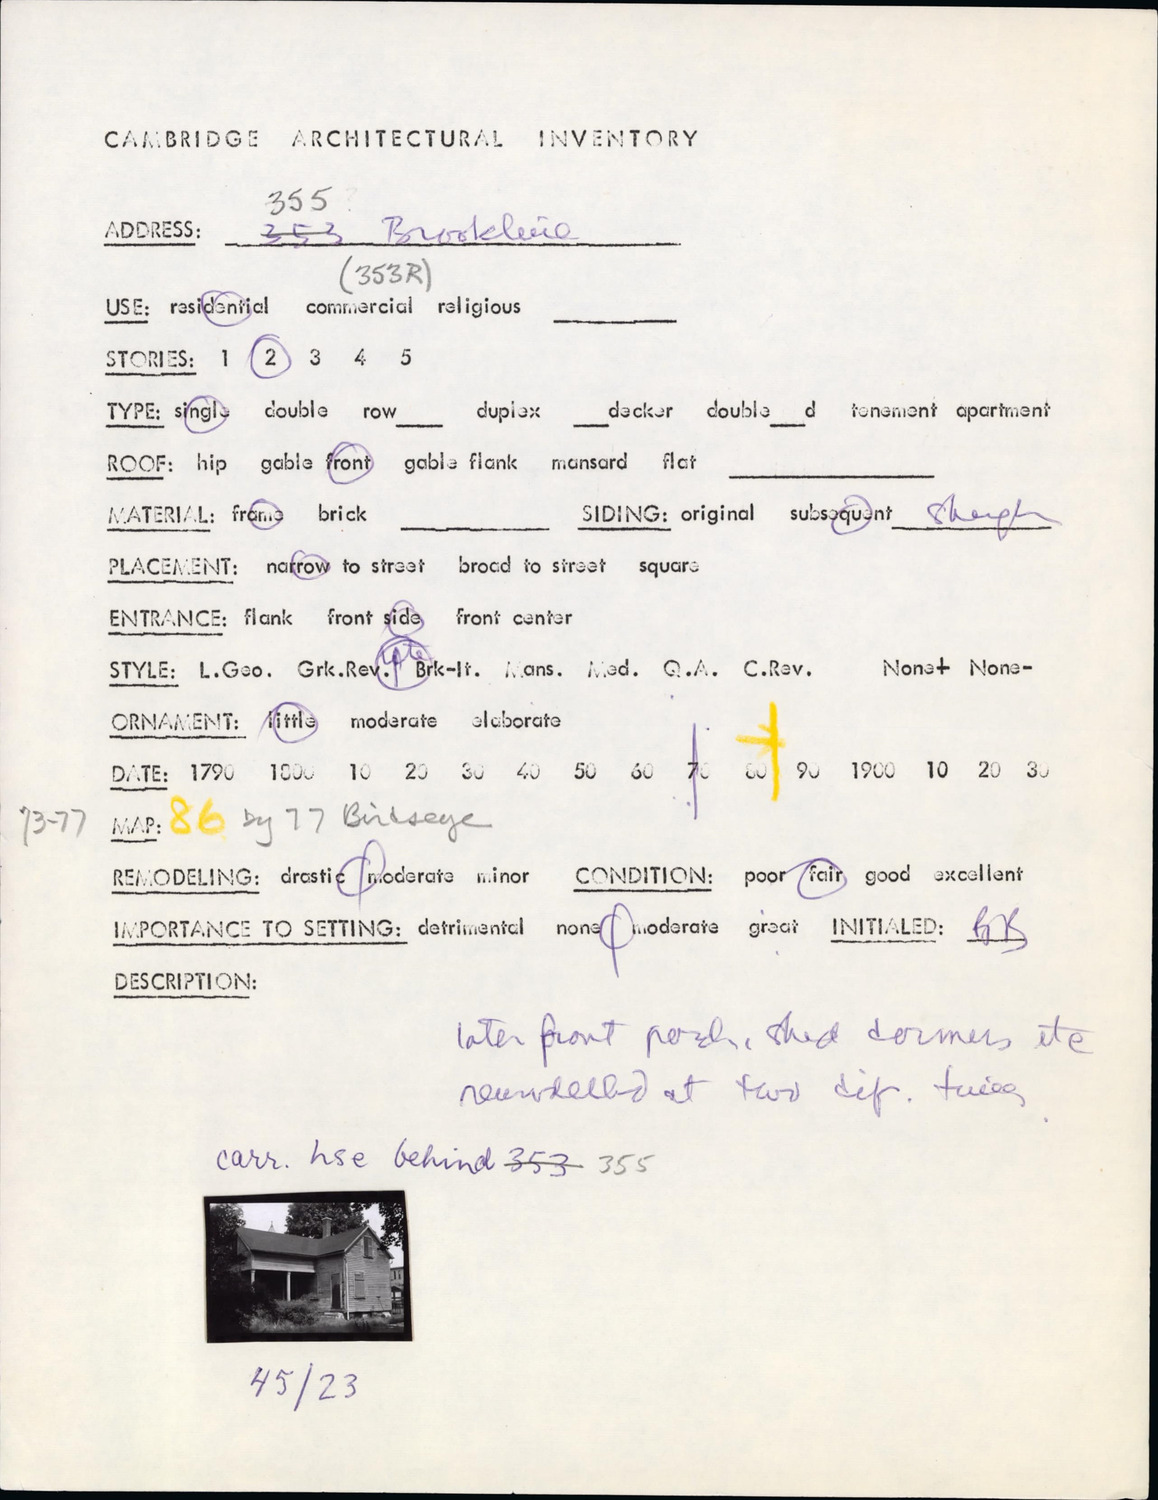 CAMBRIDGE ARCHITECTURAL INVENTORY
355
ADDRESS: 353 Brookline
(353R)
USE: residential commercial religious
STORIES: 1 2 3 4 5
TYPE: single double row___ duplex ___decker double___d tenement apartment
ROOF: hip gable front gable flank mansard flat
MATERIAL: frame brick SIDING: original subsequent
PLACEMENT: narrow to street broad to street square
ENTRANCE: flank front side front center
late
STYLE: L.Geo. Grk.Rev. Brk-It. Mans. Med. Q.A. C.Rev. None+ None-
ORNAMENT: little moderate elaborate
DATE: 1790 1800 10 20 30 40 50 60 70 80 90 1900 10 20 30
73-77 MAP: 86 by 77 Birdseye
REMODELING: drastic moderate minor CONDITION: poor fair good excellent
IMPORTANCE TO SETTING: detrimental none moderate great INITIALED:
DESCRIPTION:
later front porch, shed dormers etc
remodelled at two dif. times
carr. hse behind 353 355
45/23